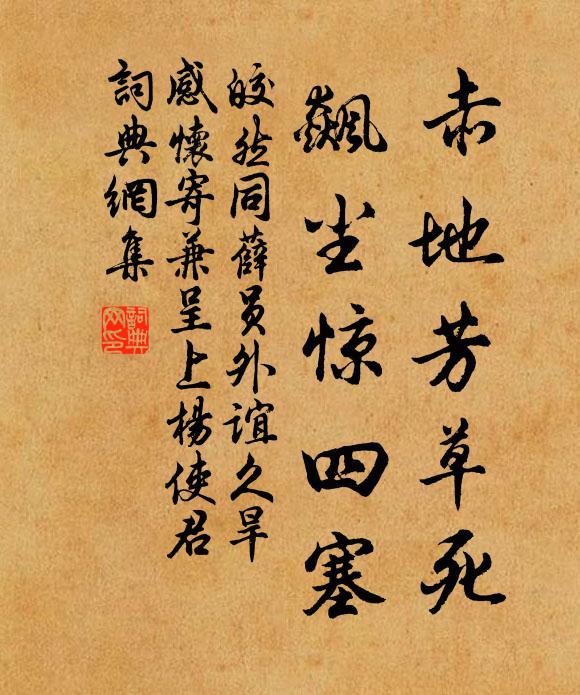 赤地芳草死
飙尘惊四塞
皎然同薛員外誼久旱
感懷寄兼呈上楊使君
詞典網集
詞典
网印